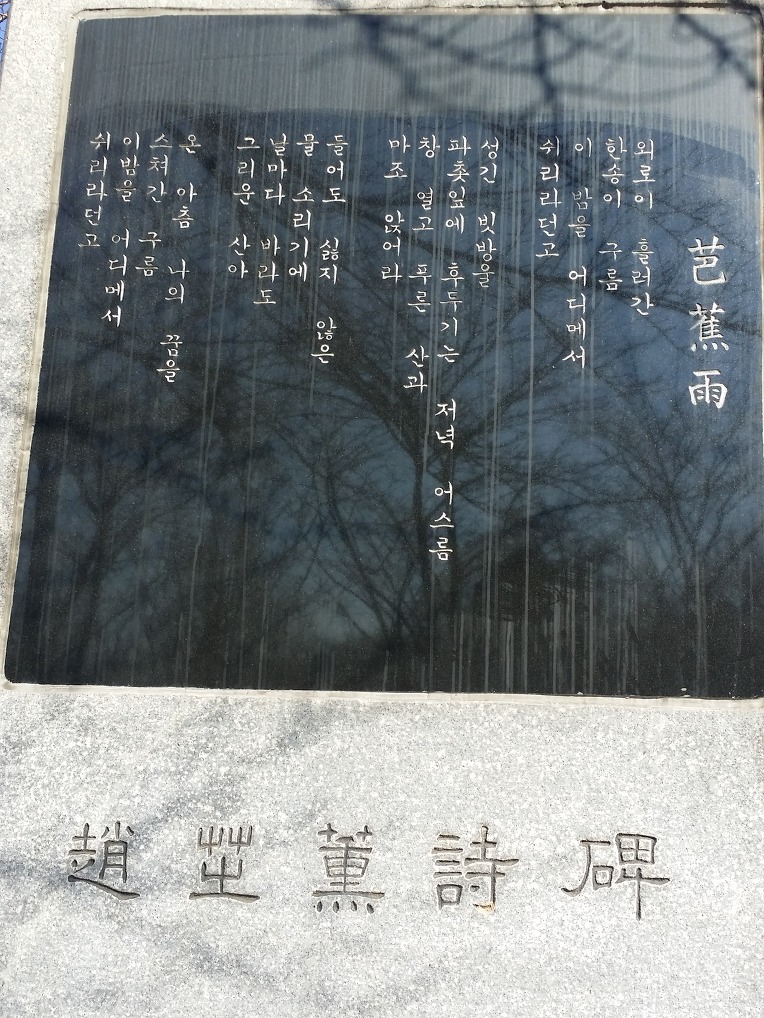 芭蕉雨
외로이 흘러간
한송이 구름
이 밤을 어디메서
쉬리라던고
성긴 빗방울
파촛잎에 후두기는 저녁 어스름
창 열고 푸른 산과
마조 앉어라
들어도 싫지 않은
물 소리기에
날마다 바라도
그리운 산아
온 아츰 나의 꿈을
스쳐간 구름
이밤을 어디메서
쉬리라던고
趙芝薰詩碑